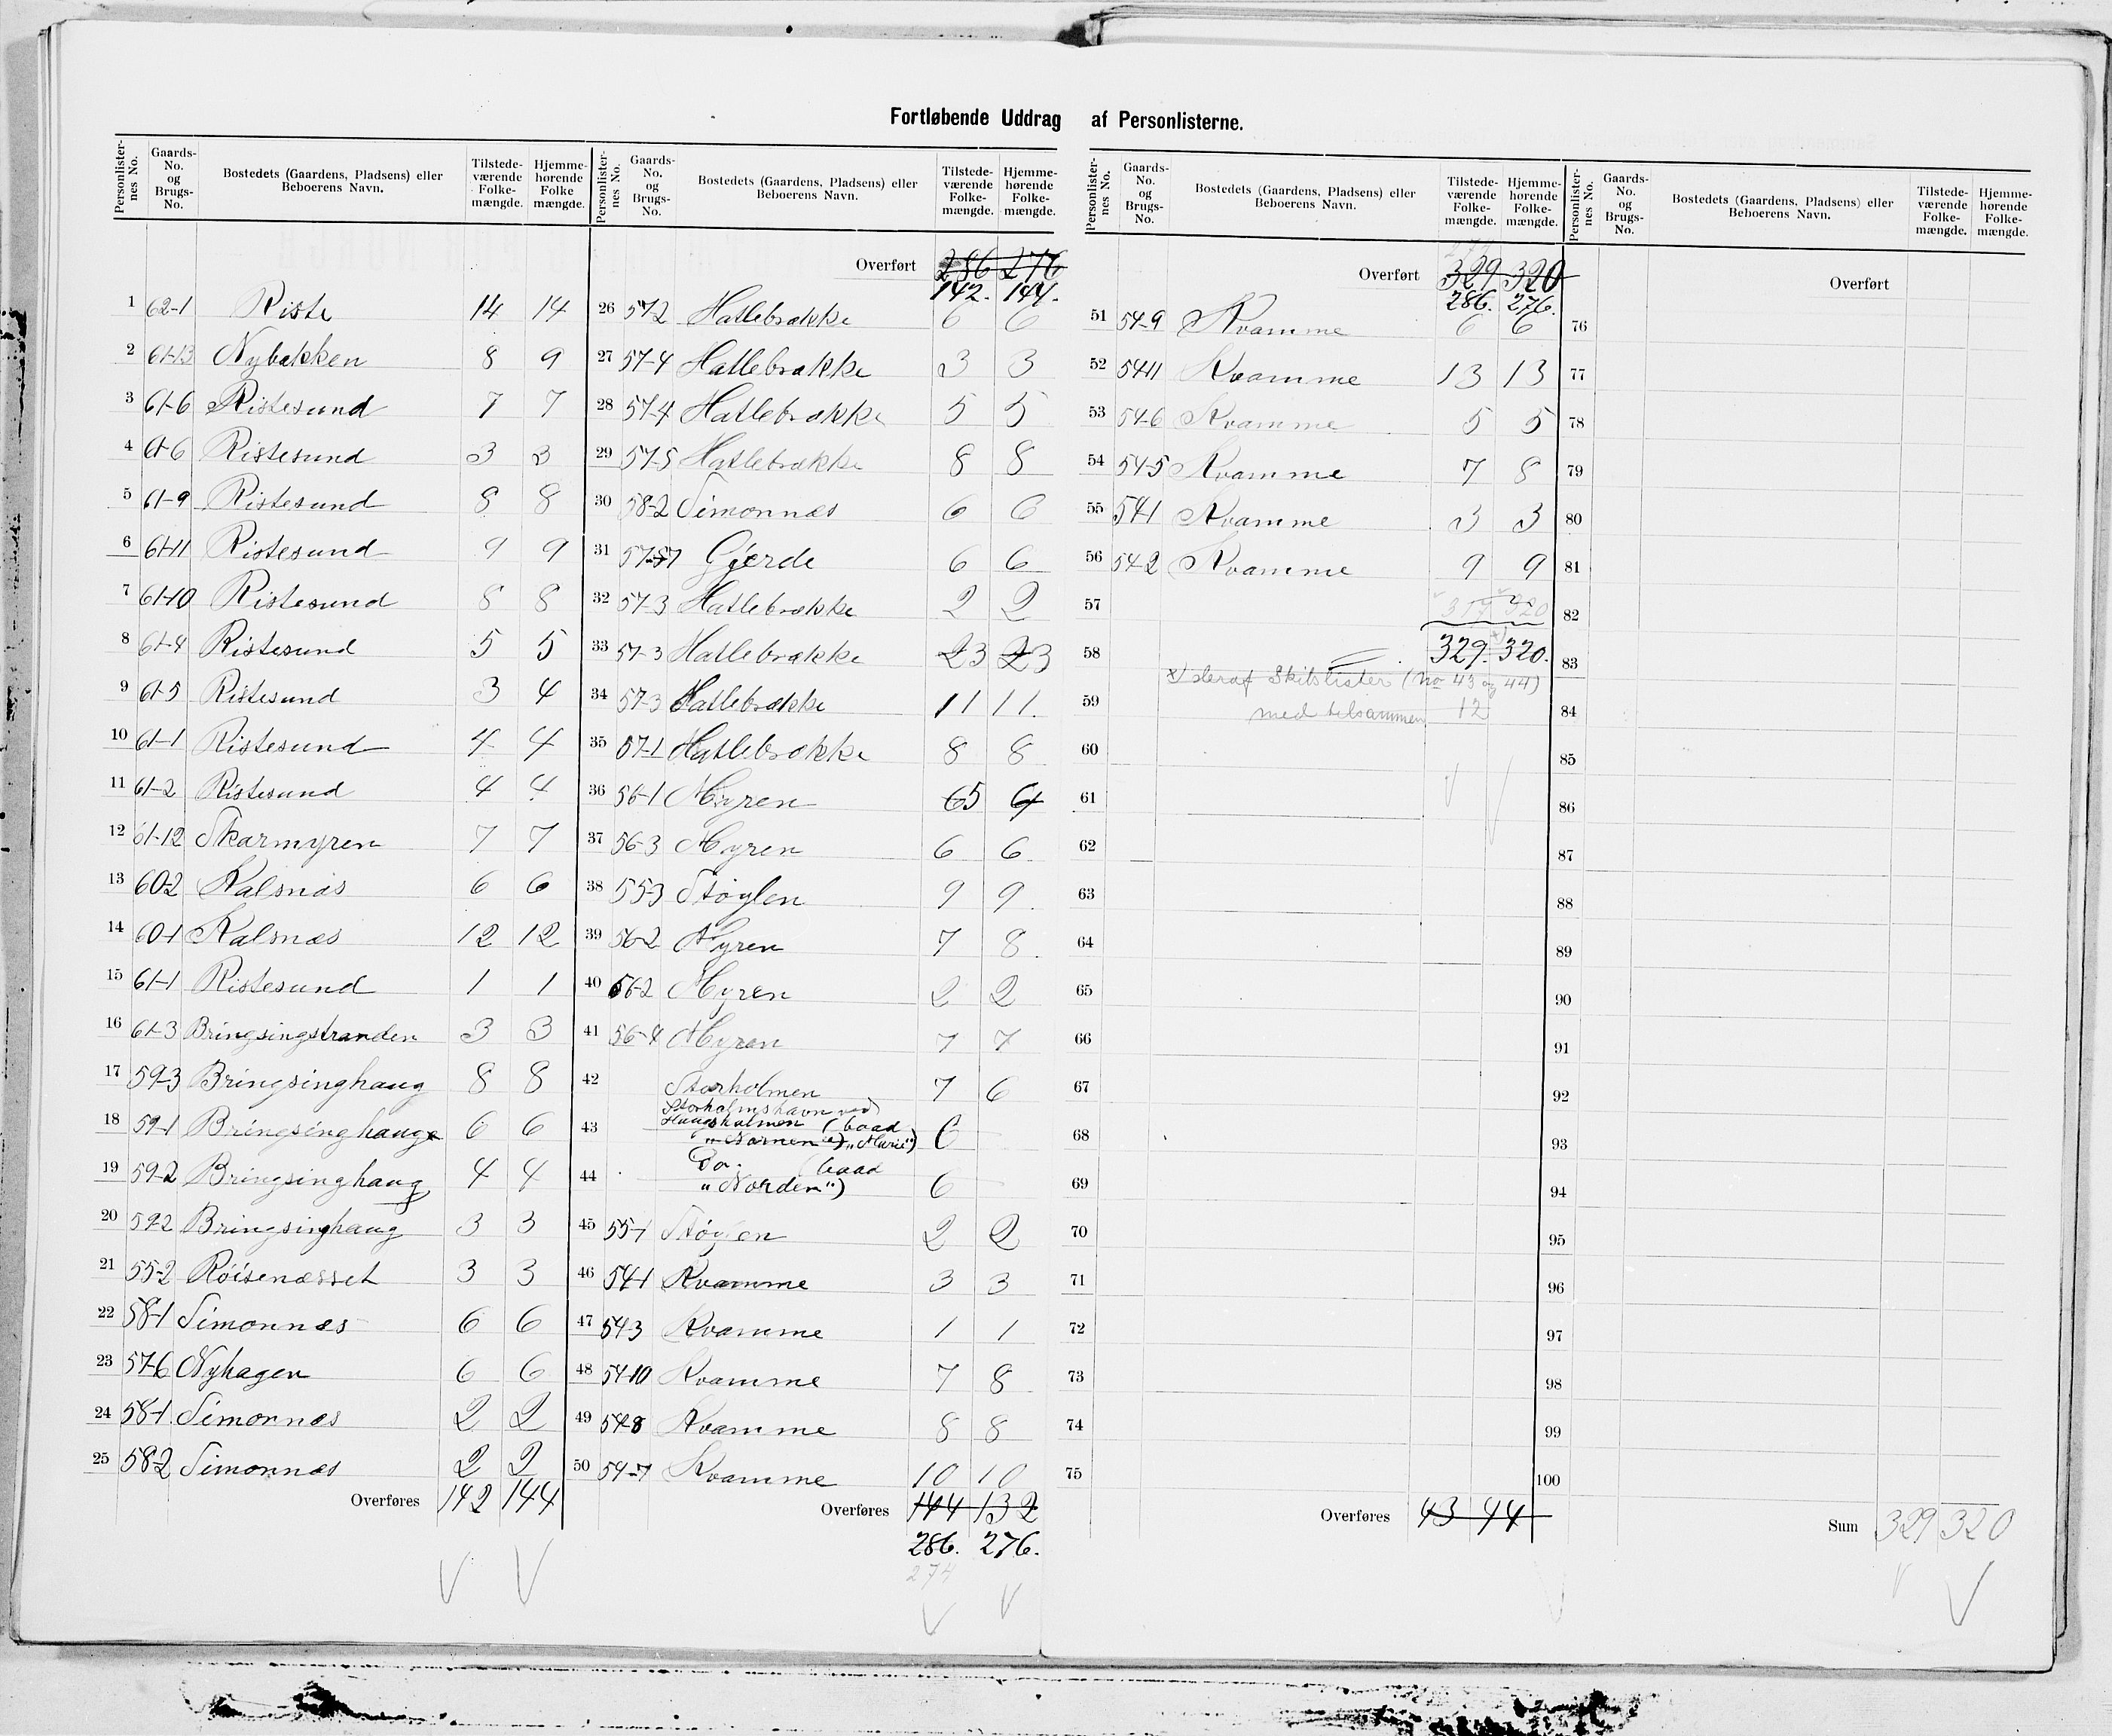 Fortløbende Uddrag af Personlisterne.
Personlister-nes No. Gaards-No. og Brugs-No. Bostedets (Gaardens, Pladsens) eller Beboerens Navn. Tilstede-værende Folke-mængde. Hjemme-hørende Folke mængde.
1 62-1 Riste 14 14
2 61-13 Nybakken 8 9
3 61-6 Ristesund 7 7
4 61-6 Ristesund 3 3
5 61-9 Ristesund 8 8
6 61-11 Ristesund 9 9
7 61-10 Ristesund 8 8
8 61-4 Ristesund 5 5
9 61-5 Ristesund 3 4
10 61-1 Ristesund 4 4
11 61-2 Ristesund 4 4
12 61-12 Skarmyren 7 7
13 60-2 Kalsnæs 6 6
14 60-1 Kalsnæs 12 12
15 61-1 Ristesund 1 1
16 61-3 Bringsingstranden 3 3
17 59-3 Bringsinghaug 8 8
18 59-1 Bringsinghaug 6 6
19 59-2 Bringsinghaug 4 4
20 59-2 Bringsinghaug 3 3
21 55-2 Röisenæsset 3 3
22 58-1 Simonnæs 6 6
23 57-6 Nyhagen 6 6
24 58-1 Simonnæs 2 2
25 58-2 Simonnæs 2 2
Overføres 142 144
Personlister-nes No. Gaards-No. og Brugs-No. Bostedets (Gaardens, Pladsens) eller Beboerens Navn. Tilstede-værende Folke-mængde. Hjemme-hørende Folke-mængde.
Overført 286 276
142. 144.
26 57-2 Hatlebrække 6 6
27 57-4 Hatlebrække 3 3
28 57-4 Hatlebrække 5 5
29 57-5 Hatlebrække 8 8
30 58-2 Simonnæs 6 6
31 57-7 Gjerde 6 6
32 57-3 Hatlebrække 2 2
33 57-3 Hatlebrække 23 23
34 57-3 Hatlebrække 11 11.
35 57-1 Hatlebrække 8 8
36 56-1 Myren 65 64
37 56-3 Myren 6 6
38 55-3 Støylen 9 9
39 56-2 Myren 7 8
40 56-2 Myren 2 2
41 56-4 Myren 7 7
42 Storholmen 7 6
43 Storholmshavn ved
Haugsholmen (baad
"Nornen") "Marie") 6
44 Do. (baad
"Norden") 6
45 55-1 Støylen 2 2
46 54-1 Kvamme 3 3
47 54-3 Kvamme 1 1
48 54-10 Kvamme 7 8
49 54-8 Kvamme 8 8
50 54-7 Kvamme 10 10
Overføres 144 132
286. 276.
274
Personlister-nes No. Gaards-No. og Brugs-No. Bostedets (Gaardens, Pladsens) eller Beboerens Navn. Tilstede-værende Folke-mængde. Hjemme-hørende Folke-mængde.
Overført 329 320
286. 276.
51 54-9 Kvamme 6 6
52 54-11 Kvamme 13 13
53 54-6 Kvamme 5 5
54 54-5 Kvamme 7 8
55 54-1 Kvamme 3 3
56 54-2 Kvamme 9 9
57 317 320
58 329. x) 320.
x) deraf Skibslister (No 43 og 44)
59 med tilsammen 12
60
61
62
63
64
65
66
67
68
69
70
71
72
73
74
75
Overføres 43 44
Personlister-nes No. Gaards-No. og Brugs-No. Bostedets (Gaardens, Pladsens) eller Beboerens Navn. Tilstede-værende Folke-mængde. Hjemme-hørende Folke-mængde.
Overført
76
77
78
79
80
81
82
83
84
85
86
87
88
89
90
91
92
93
94
95
96
97
98
99
100
Sum 329 320